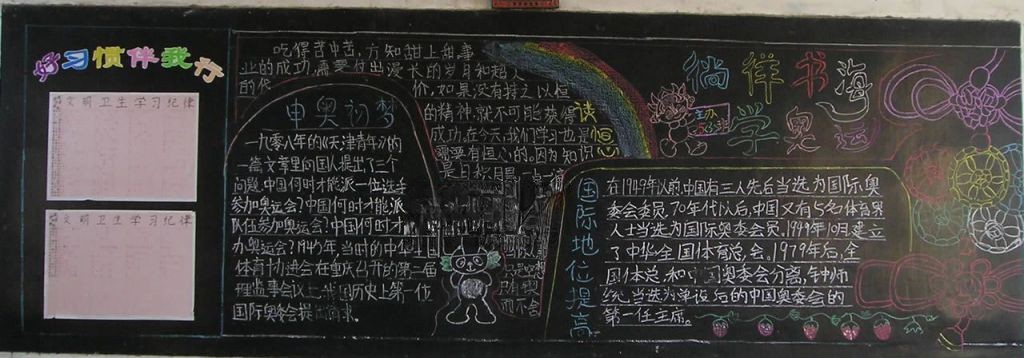 好习惯伴我行
文明卫生学习纪律
文明卫生学习纪律
吃得苦中苦,方知甜上甜事
业的成功,需要付出漫长的岁月和超
的代
价,如果没有持之以恒
的精神,就不可能获得
成功,在今天,我们学习也是
需要有恒心的。因为知识
是日积月累,一点一滴
读恒心
申奥初梦
一九零八年的《天津青年》的
一篇文章里向国人提出了三个
问题.中国何时才能派一位选手
参加奥运会?中国何时才能派
队伍参加奥运会?中国何时才
办奥运会?1945年,当时的中华全国
体育协进会在重庆召开的第二届
理监事会议上 我国历史上第一位
国际奥委会提
而不舍
徜徉书海
学奥运
国际地位提高
在1949年以前,中国有三人先后当选为国际奥
委会委员.70年代以后,中国又有5名体育界
人士当选为国际奥委会委员.1949年10月建立
了中华全国体育总会。1979年后,全
国体总和中国奥委会分离,钟师
统当选为单设后的中国奥委会的
第一任主席。